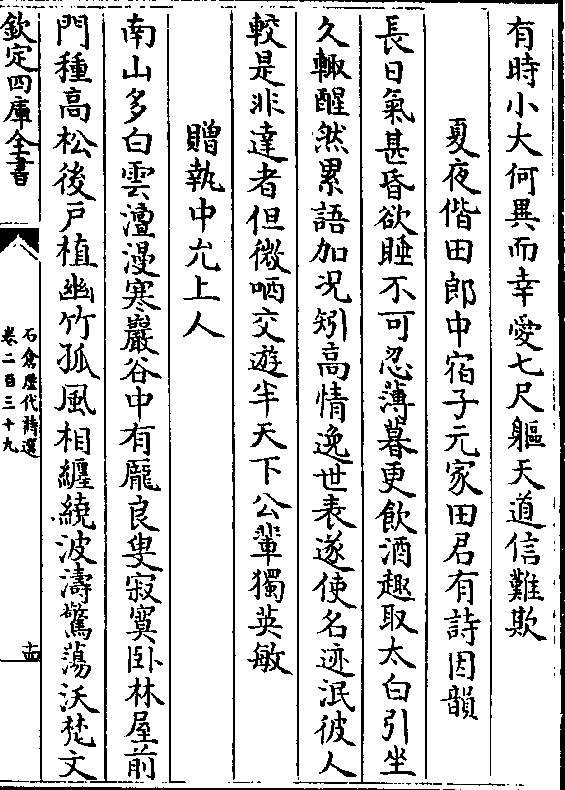 有時小大何異而幸愛七尺軀天道信難欺
夏夜偕田郎中宿子元家田君有詩因韻
長日氣甚昏欲睡不可忍薄暮更飲酒趣取太白引坐
久輙醒然累語加况矧高情逸世表遂使名迹泯彼人
較是非達者但微哂交遊半天下公軰獨英敏
贈執中尤上人
南山多白雲澶漫寒巖谷中有龐良叟寂寞卧林屋前
門種高松後戸植幽竹孤風相纏繞波濤驚蕩沃梵文
欽定四庫全書
石倉歴代詩選
卷二百三十九
十四